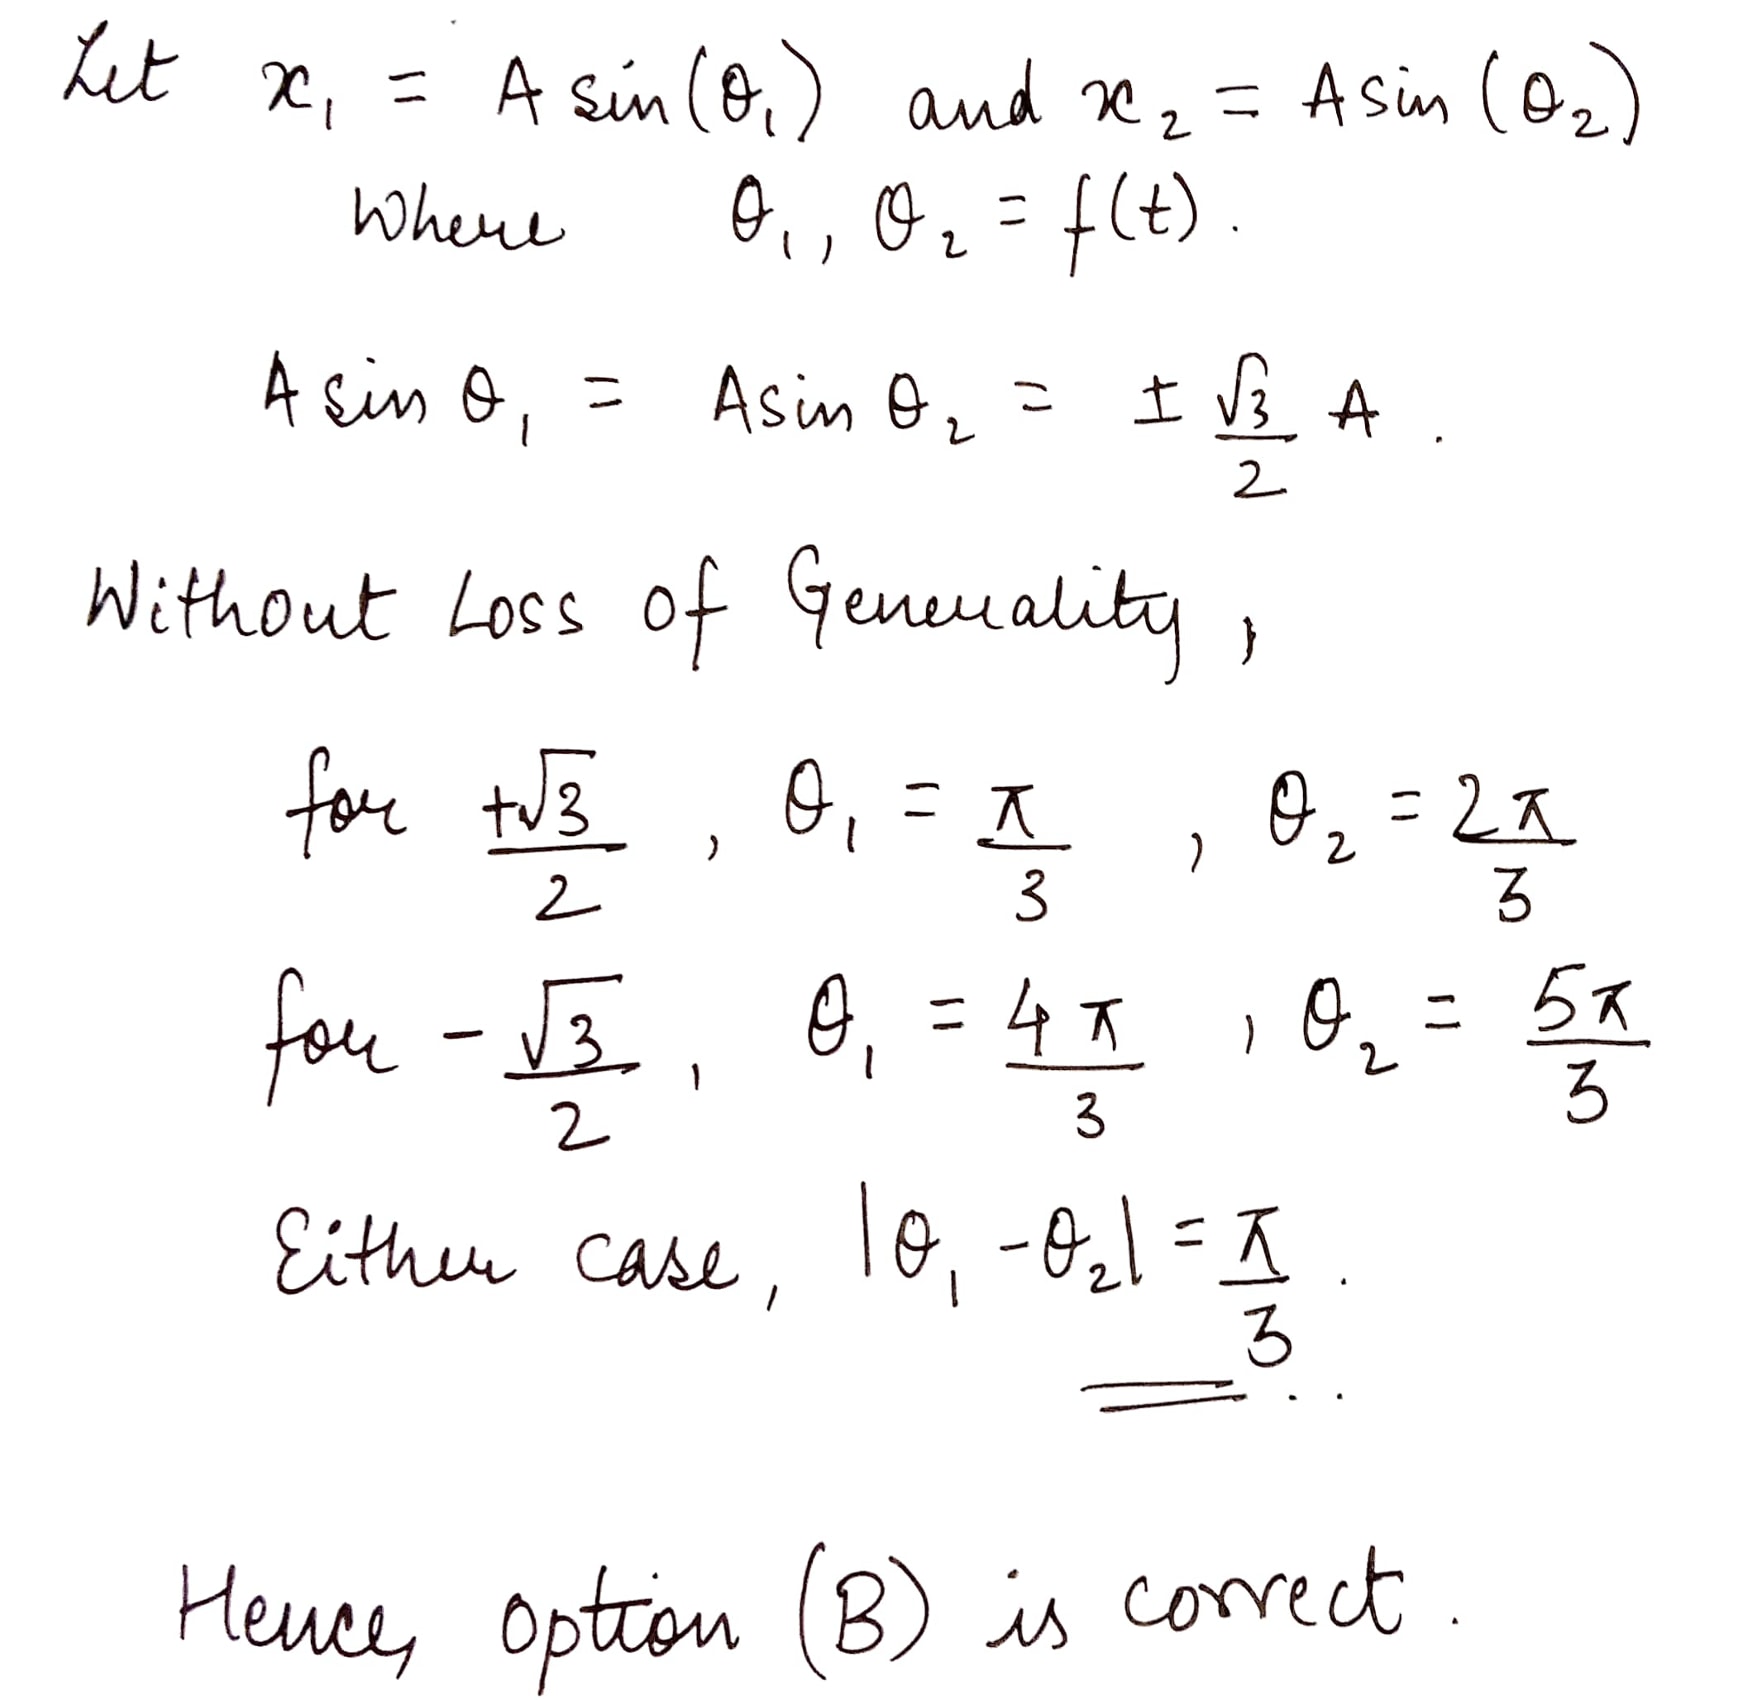 Let x₁ = A sin(θ₁) and x₂ = A sin(θ₂)
Where θ₁, θ₂ = f(t).
A sin θ₁ = A sin θ₂ = ± √3/2 A.
Without Loss of Generality,
for +√3/2, θ₁ = π/3, θ₂ = 2π/3
for -√3/2, θ₁ = 4π/3, θ₂ = 5π/3
Either case, |θ₁ - θ₂| = π/3.
Hence, option (B) is correct.